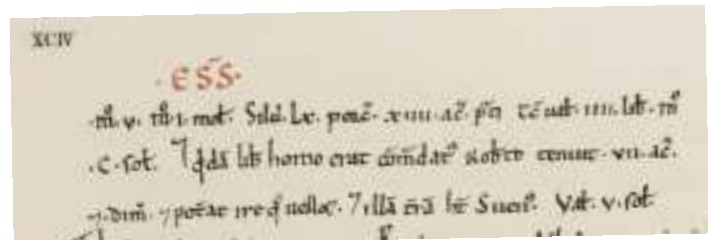 XCIV
· ESS·
·m̊·v· m̊·i·mol̃· Silu̇·Lx· porc̃· xiiii·ac̃· p̃ti tc̃ ual̃·iiii·lib̃· m̊
·c·sol̃· ⁊ qđã lib̃ homo erat cõmđat⁹ robto tenuit·vii·ac̃·
⁊·dim̃· ⁊ poterat ire q̊ uellet· ⁊ illã t̃rã h̃t Sueñ· Val̃·v·sol̃